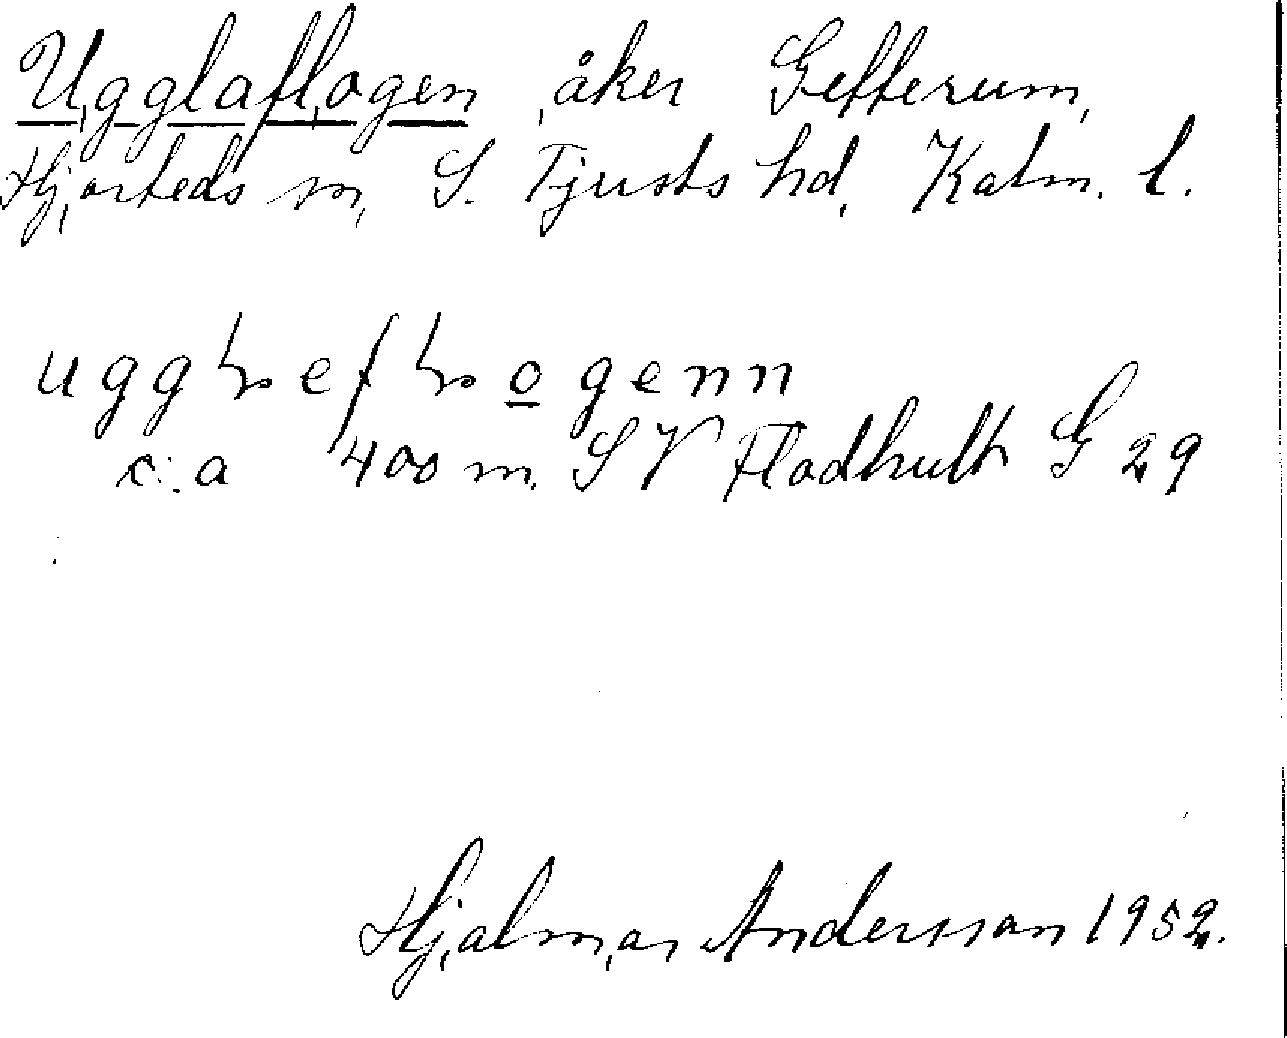 Ugglaflogen, åker Gefferum,
Hjorteds sn, S. Tjusts hd, Kalm. l.
c:a 400 m. SV Flodhult G 29
Hjalmar Andersson 1952.